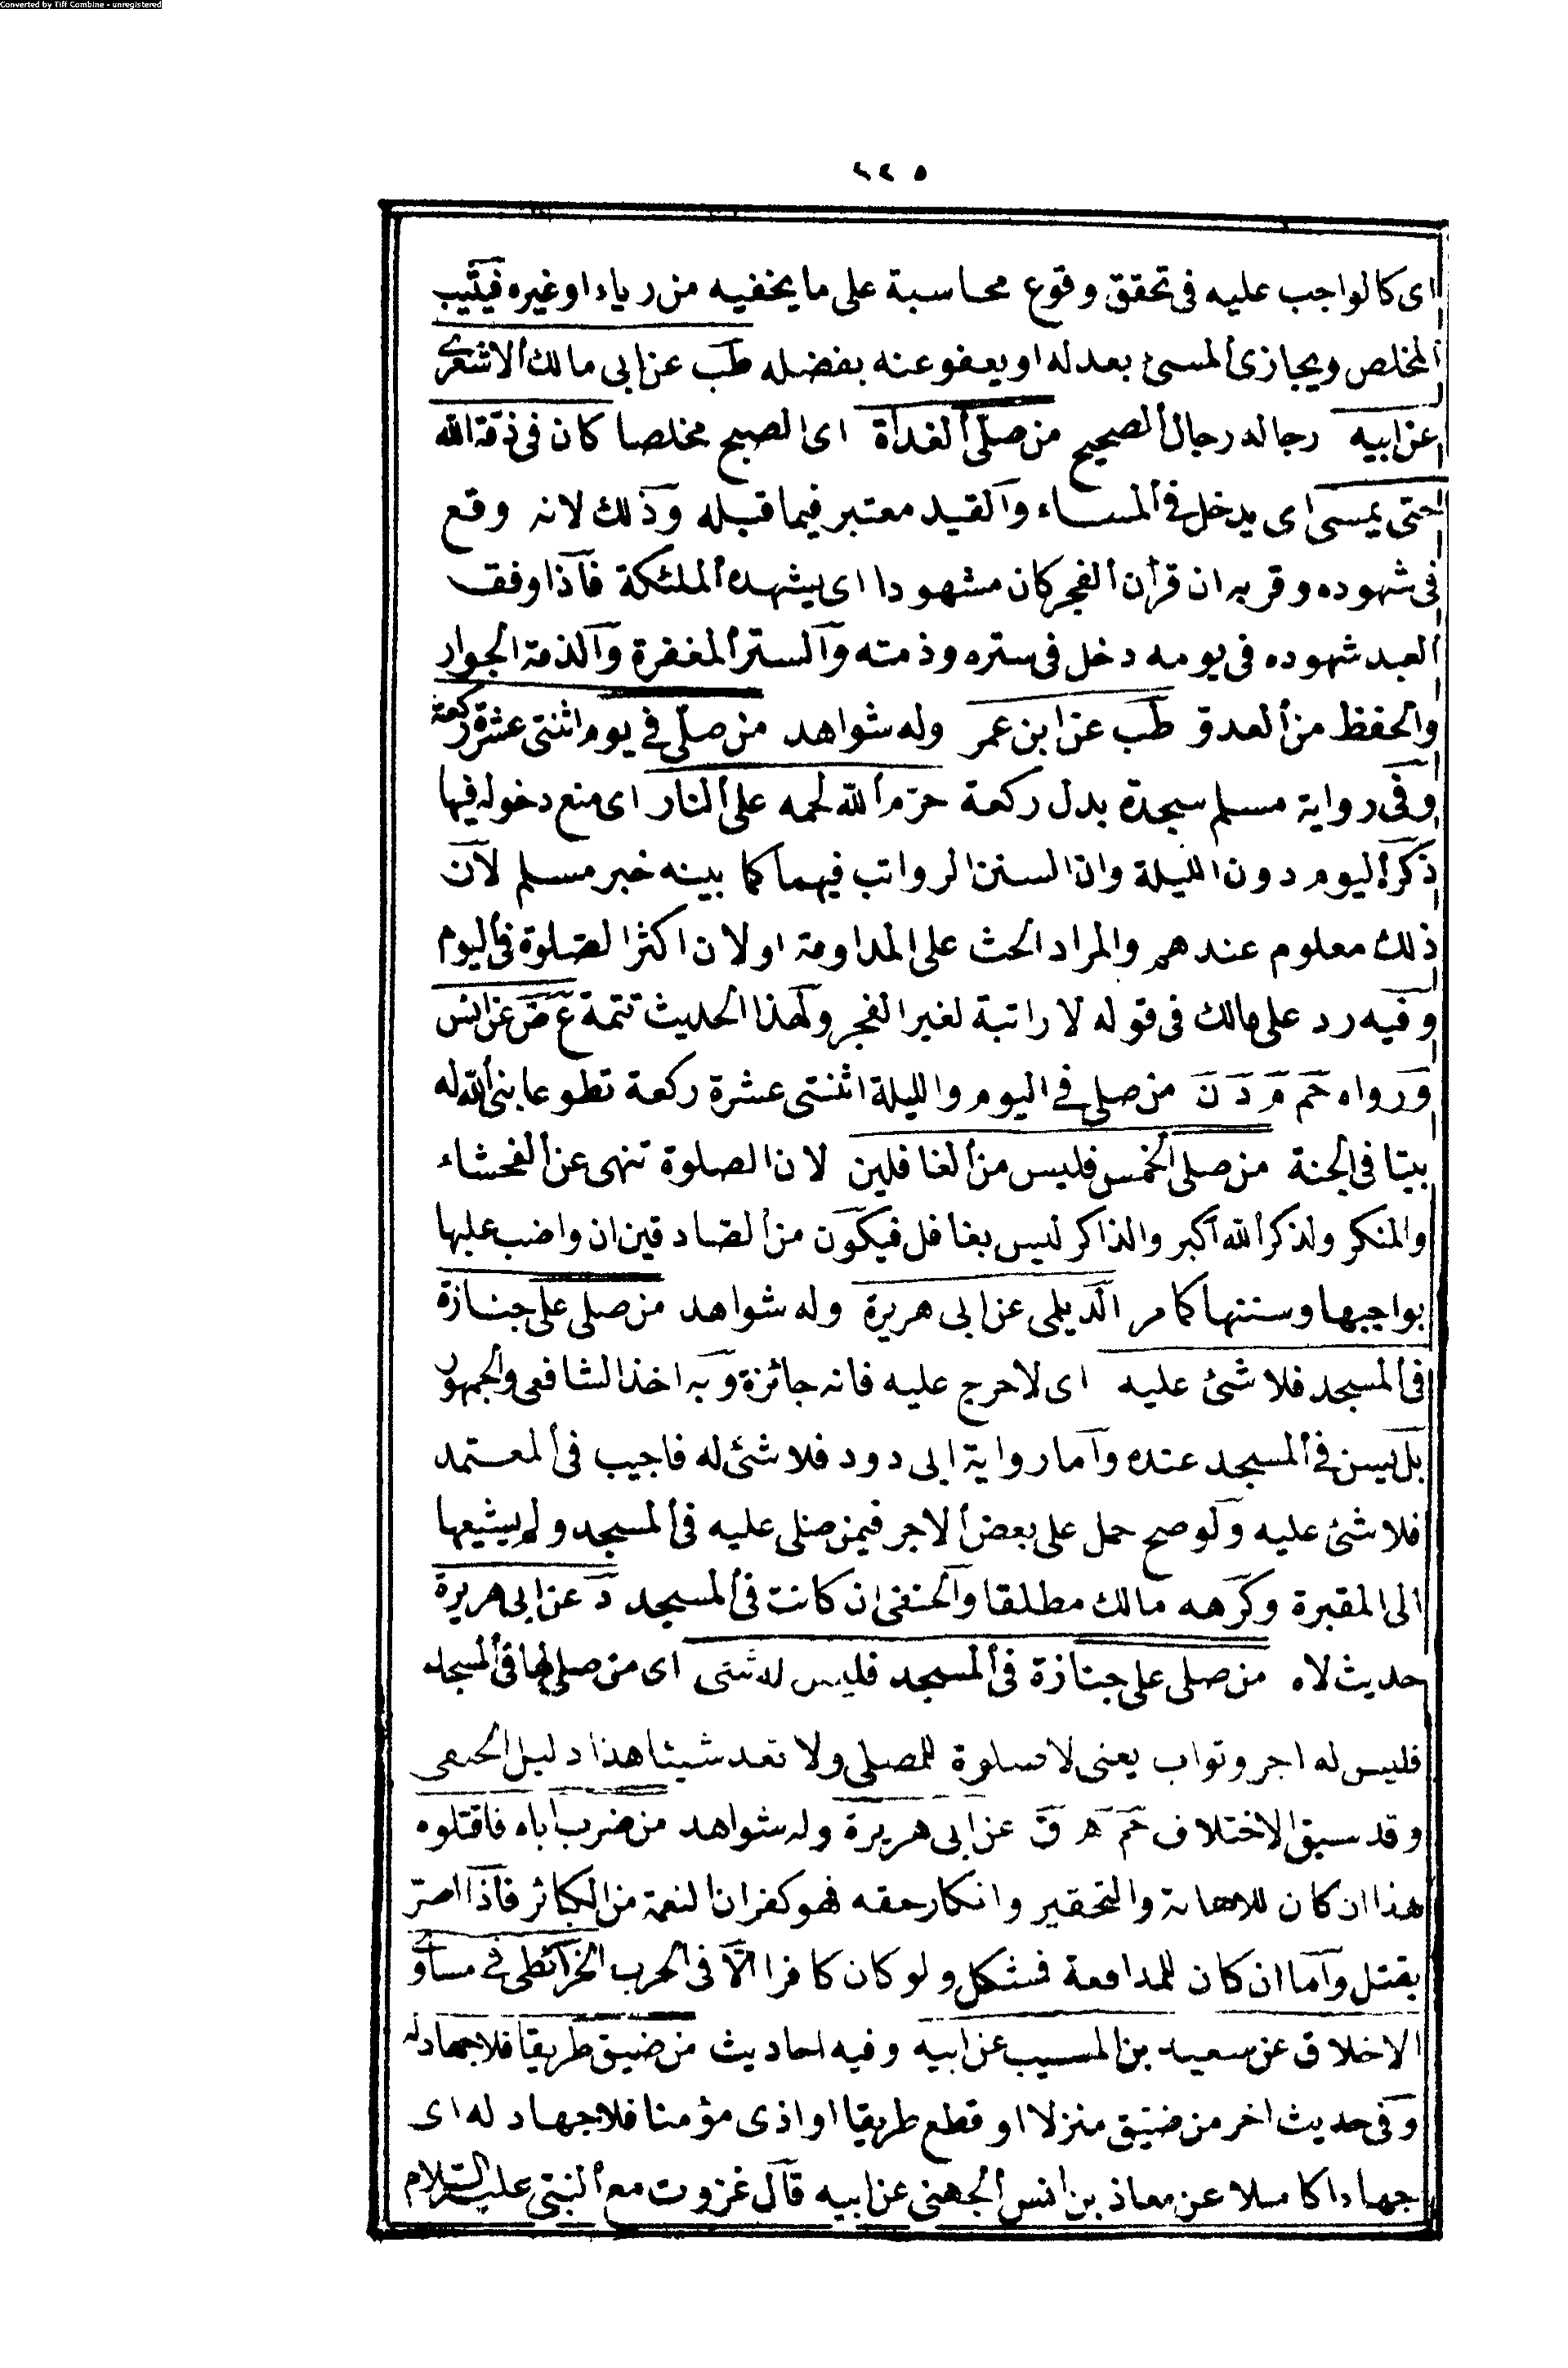 Converted by Tiff Combine - unregistered
٤٢٥
اى كالواجب عليه فى تحقق وقوع محاسبة على ما يخفيه من رياء او غيره فيثيب
المخلص ويجازى المسئ بعدله او يعفو عنه بفضله طب عن ابى مالك الاشعرى
عن ابيه رجاله رجال الصحيح من صلى الغداة اى الصبح مخلصا كان فى ذمة الله
حتى يمسى اى يدخل فى المساء والقيد معتبر فيما قبله وذلك لانه وقع
فى شهوده وقربه ان قرأن الفجر كان مشهودا اى يشهده الملئكة فاذا وفق
العبد شهوده فى يومه دخل فى ستره وذمته والستر المغفرة والذمة الجوار
والحفظ من العدو طب عن ابن عمر وله شواهد من صلى فى يوم اثنتى عشرة ركعة
وفى رواية مسلم سجدة بدل ركعة حرم الله لحمه على النار اى منع دخوله فيها
ذكر اليوم دون الليلة وان السنن الرواتب فيهما كما بينه خبر مسلم لان
ذلك معلوم عندهم والمراد الحث على المداومة او لان اكثر الصلوة فى اليوم
وفيه رد على مالك فى قوله لا راتبة لغير الفجر ولهذا الحديث تتمة ع ض عن انس
ورواه حم م د ن من صلى فى اليوم والليلة اثنتى عشرة ركعة تطوعا بنى الله له
بيتا فى الجنة من صلى الخمس فليس من الغافلين لان الصلوة تنهى عن الفحشاء
والمنكر ولذكر الله اكبر والذاكر ليس بغافل فيكون من الصادقين ان واضب عليها
بواجبها وسننها كما مر الديلمى عن ابى هريرة وله شواهد من صلى على جنازة
فى المسجد فلا شئ عليه اى لا حرج عليه فانه جائزة وبه اخذ الشافعى والجمهور
بل يسن فى المسجد عنده واما رواية ابى دود فلا شئ له فاجيب فى المعتمد
فلا شئ عليه ولو صح حمل على بعض الاجر فيمن صلى عليه فى المسجد ولم يشيعها
الى المقبرة وكرهه مالك مطلقا والحنفى ان كانت فى المسجد د عن ابى هريرة
حديث لاه من صلى على جنازة فى المسجد فليس له شئى اى من صلى لها فى المسجد
فليس له اجر وثواب يعنى لا صلوة للمصلى ولا تعد شيئا هذا دليل الحنفى
وقد سبق الاختلاف حم ه ق عن ابى هريرة وله شواهد من ضرب اباه فاقتلوه
هذا ان كان للاهانة والتحقير وانكار حقه فهو كفران النعمة من الكبائر فاذا اصرّ
يقتل واما ان كان للمدافعة فشكل ولو كان كافرا الا فى الحرب الخرائطى فى مساوى
الاخلاق عن سعيد بن المسيب عن ابيه وفيه احاديث من ضيق طريقا فلا جهاد له
وفى حديث اخر من ضيّق منزلا او قطع طريقا او اذى مؤمنا فلا جهاد له اى
جهادا كاملا عن معاذ بن انس الجهنى عن ابيه قال غزوت مع النبى عليه السلام